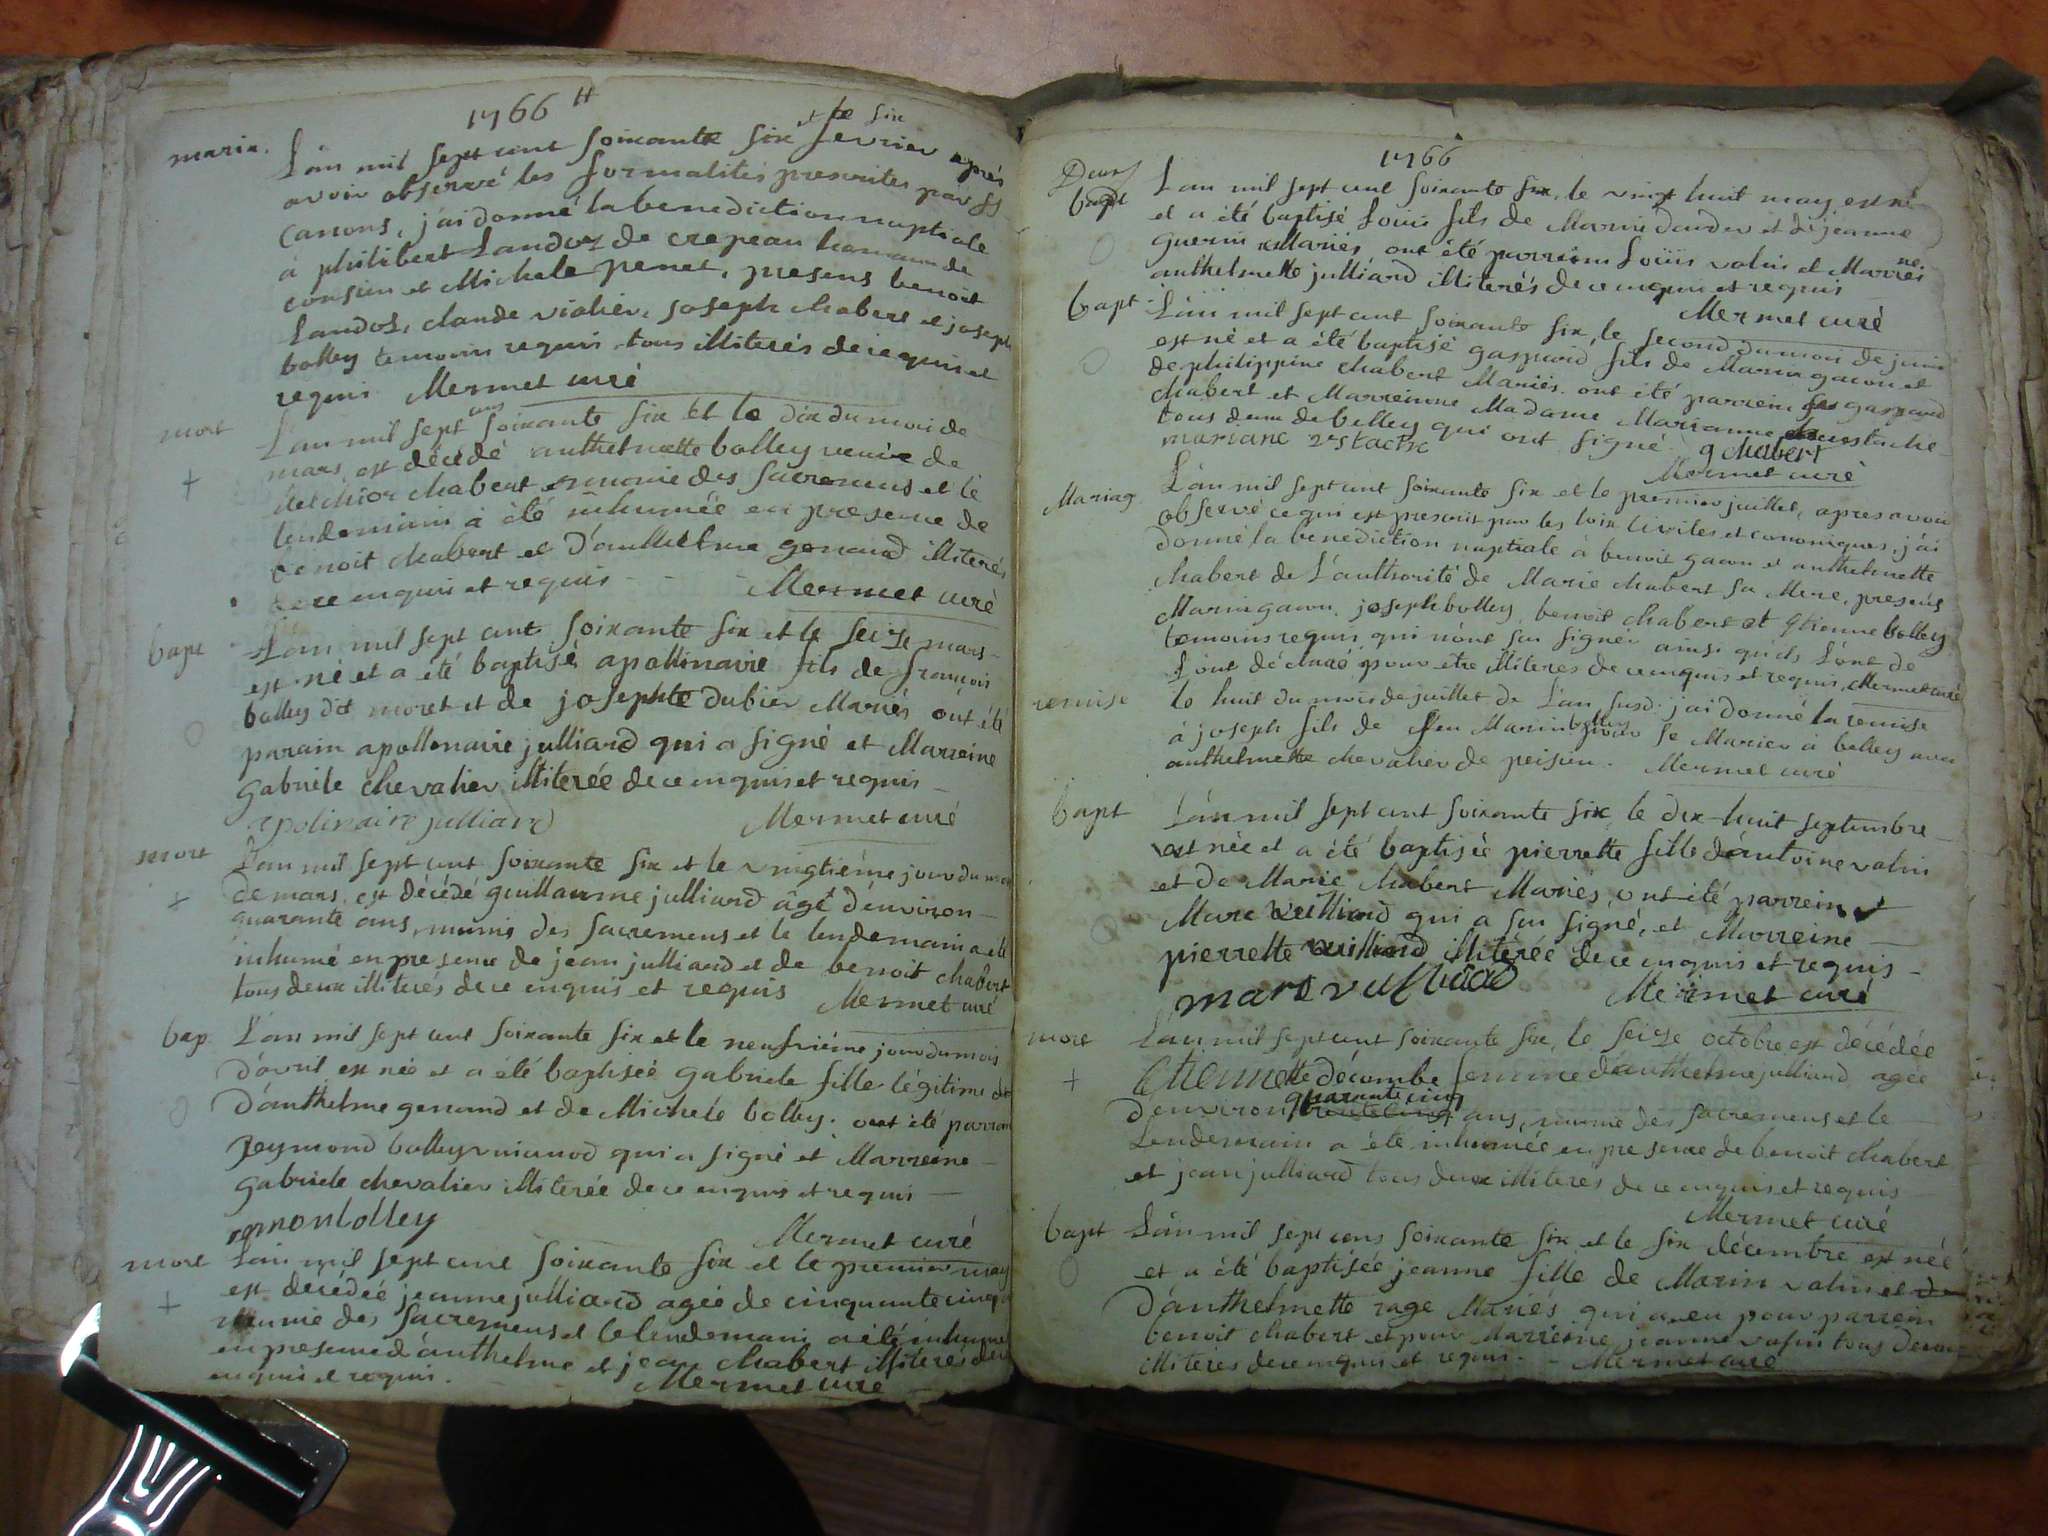 1766
maria.
et le six
L'an mil sept cent soixante six fevrier après
avoir observé les formalités prescrites par ss
canons, j'ai donné la benediction nuptiale
à philibert Landoz de crepeau hameau de
consieu et Michele penet, presens benoit
Landoz, claude violier, joseph chabert et joseph
bolley temoins requis tous illiterés de ce enquis et
requis Mermet curé
mort
L'an mil sept cens soixante six et le dix du mois de
mars, est décédé anthelmette bolley veuve de
Melchior chabert munie des sacremens et le
lendemain a été inhumée en presence de
benoit chabert et d'anthelme genand illiterés
de ce enquis et requis - - - Mermet curé
bapt
L'an mil sept cent soixante six et le seize mars
est né et a été baptisé apollinaire fils de françois
bolley dit moret et de josephte dubier Mariés ont été
parain apollinaire julliard qui a signé et Marreine
gabriele chevalier illiterée de ce enquis et requis
apolinaire julliard Mermet curé
mort
L'an mil sept cent soixante six et le vingtiéme jour du mois
de mars, est décédé guillaume julliard âgé d'environ
quarante ans, munis des sacremens et le lendemain a été
inhumé en presence de jean julliard et de benoit chabert
tous deux illiterés de ce enquis et requis Mermet curé
bap
L'an mil sept cent soixante six et le neufviéme jour du mois
d'avril est née et a été baptisée gabriele fille légitime de
d'anthelme genand et de Michele bolley. ont été parrain
Reymond bolley qui a signé et Marreine
gabriele chevalier illiterée de ce enquis et requis
remon bolley
Mermet curé
mort
L'an mil sept cent soixante six et le premier may
est decédée jeanne julliard agée de cinquante cinq
munie des sacremens et le lendemain a été inhumé
en presence d'anthelme et jean chabert illiterés de ce
enquis et requis. Mermet curé
1766
Deux
bapt
L'an mil sept cent soixante six, le vingt huit may est né
et a été baptisé Louis fils de Marin dauder et de jeanne
guerin Mariés, ont été parrein Louis valin et Marreine
anthelmette julliard illiterés de ce enquis et requis
Mermet curé
bapt
L'an mil sept cent soixante six, le second du mois de juin
est né et a été baptisé gaspard fils de Marin gacon et
de philippine chabert Mariés. ont été parrein gaspard
chabert et Marreinne Madame Marianne eustache
tous deux de belley qui ont signé. g chabert
mariane Mermet curé
Mariag
L'an mil sept cent soixante six et le premier juillet, apres avoir
observé ce qui est prescrit par les loix civiles et canoniques, j'ai
donné la benediction nuptiale à benoit gacon et anthelmette
chabert de l'authorité de Marie chabert sa Mere, presens
Marin gacon, joseph bolley, benoit chabert et Etienne bolley
temoins requis, qui n'ont su signer ainsi qu'ils l'ont de
l'ont déclaré pour etre illiteres de ce enquis et requis, Mermet curé
remise
Le huit du mois de juillet de l'an susd. j'ai donné la remise
à joseph fils de feu Marin bolley pour se Marier à belley avec
anthelmette chevalier de peisieu. Mermet curé
bapt
L'an mil sept cent soixante six, le dix-huit septembre
est née et a été baptisée pierrette fille d'antoine valin
et de Marie chabert Mariés, ont été parrein
Marc vulliard qui a su signé, et Marreine
pierrette vuilliard illiterée de ce enquis et requis
marc vulliard Mermet curé
mort
L'an mil sept cent soixante six, le seize octobre est décédée
Etiennette décombe femme d'anthelme julliard agée
quarante cinq
d'environ ans, munie des sacremens et le
Lendemain a été inhumée en presence de benoit chabert
et jean julliard tous deux illiterés de ce enquis et requis
Mermet curé
bapt
L'an mil sept cens soixante six et le six décembre est née
et a été baptisée jeanne fille de Marin valin et
d'anthelmette rage Mariés qui a eu pour parrein
benoit chabert et pour Marreine jeanne valin tous deux
illiterés de ce enquis et requis. - Mermet curé